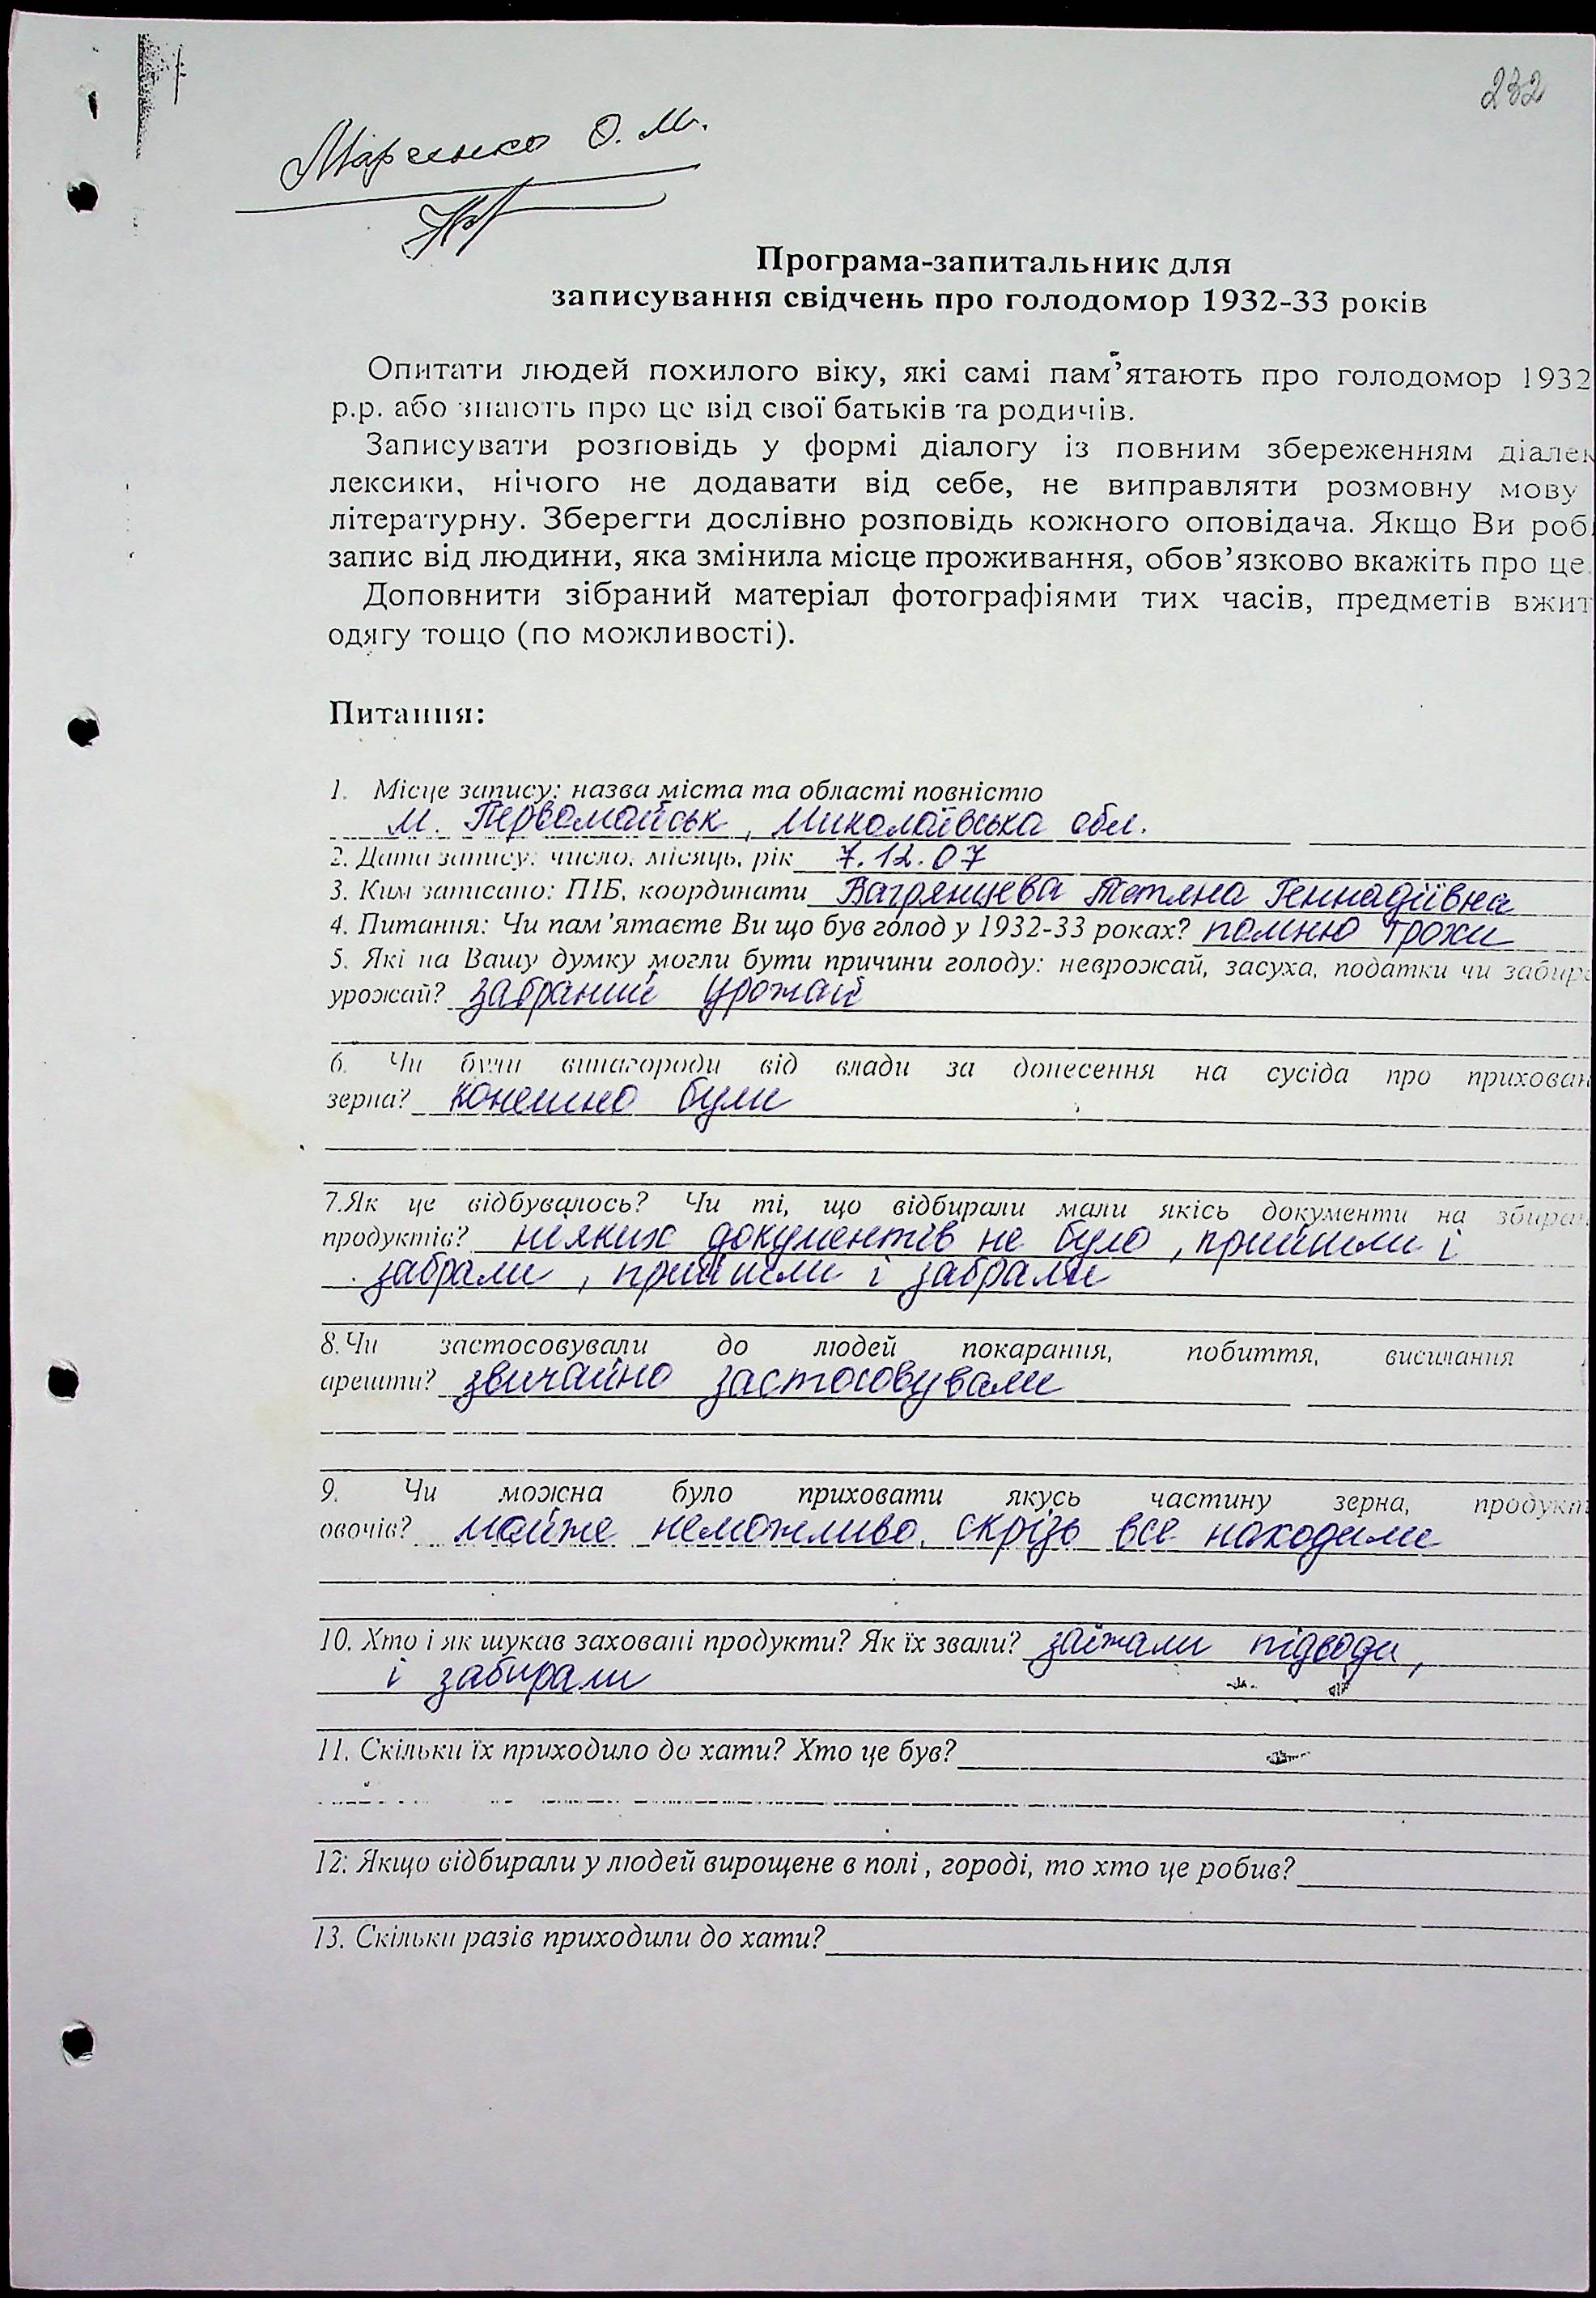 232
Марченко О. М.
Програма-запитальник для
записування свідчень про голодомор 1932-33 років
Опитати людей похилого віку, які самі пам’ятають про голодомор 1932
р.р. або знають про це від свої батьків та родичів.
Записувати розповідь у формі діалогу із повним збереженням діалек
лексики, нічого не додавати від себе, не виправляти розмовну мову
літературну. Зберегти дослівно розповідь кожного оповідача. Якщо Ви роб
запис від людини, яка змінила місце проживання, обов’язково вкажіть про це.
Доповнити зібраний матеріал фотографіями тих часів, предметів вжит
одягу тощо (по можливості).
Питання:
1. Місце запису: назва міста та області повністю
м. Первомайськ, Миколаївська обл.
2. Дата запису: число, місяць, рік 7.12.07
3. Ким записано: ПІБ, координати Вагрянцева Тетяна Геннадіївна
4. Питання: Чи пам’ятаєте Ви що був голод у 1932-33 роках? помню трохи
5. Які на Вашу думку могли бути причини голоду: неврожай, засуха, податки чи забира
урожай? забраний урожай
6. Чи були винагороди від влади за донесення на сусіда про прихован
зерна? конешно були
7.Як це відбувалось? Чи ті, що відбирали мали якісь документи на збиран
продуктів? ніяких документів не було, прийшли і
забрали, прийшли і забрали
8.Чи застосовували до людей покарання, побиття, висилання
арешти? звичайно застосовували
9. Чи можна було приховати якусь частину зерна, продукт
овочів? майже неможливо. скрізь все находили
10. Хто і як шукав заховані продукти? Як їх звали? заїжали підводи,
і забирали
11. Скільки їх приходило до хати? Хто це був?
12. Якщо відбирали у людей вирощене в полі, городі, то хто це робив?
13. Скільки разів приходили до хати?